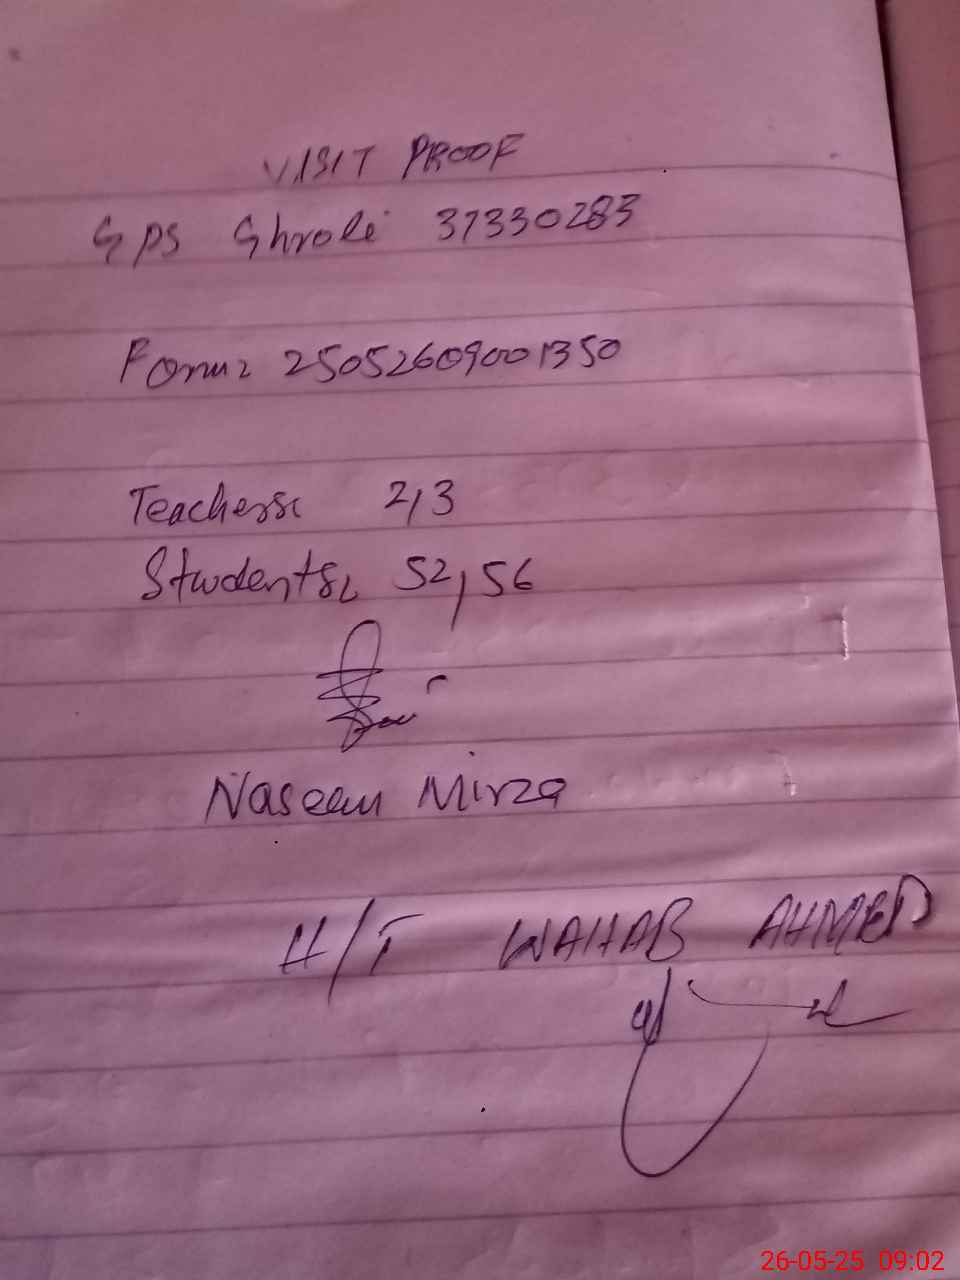 VISIT PROOF
GPS Ghroli 37330283
Form: 25052609001350
Teachers: 2,3
Students: 52,56
Naseem Mirza
H/T WAHAB AHMED
26-05-25 09:02